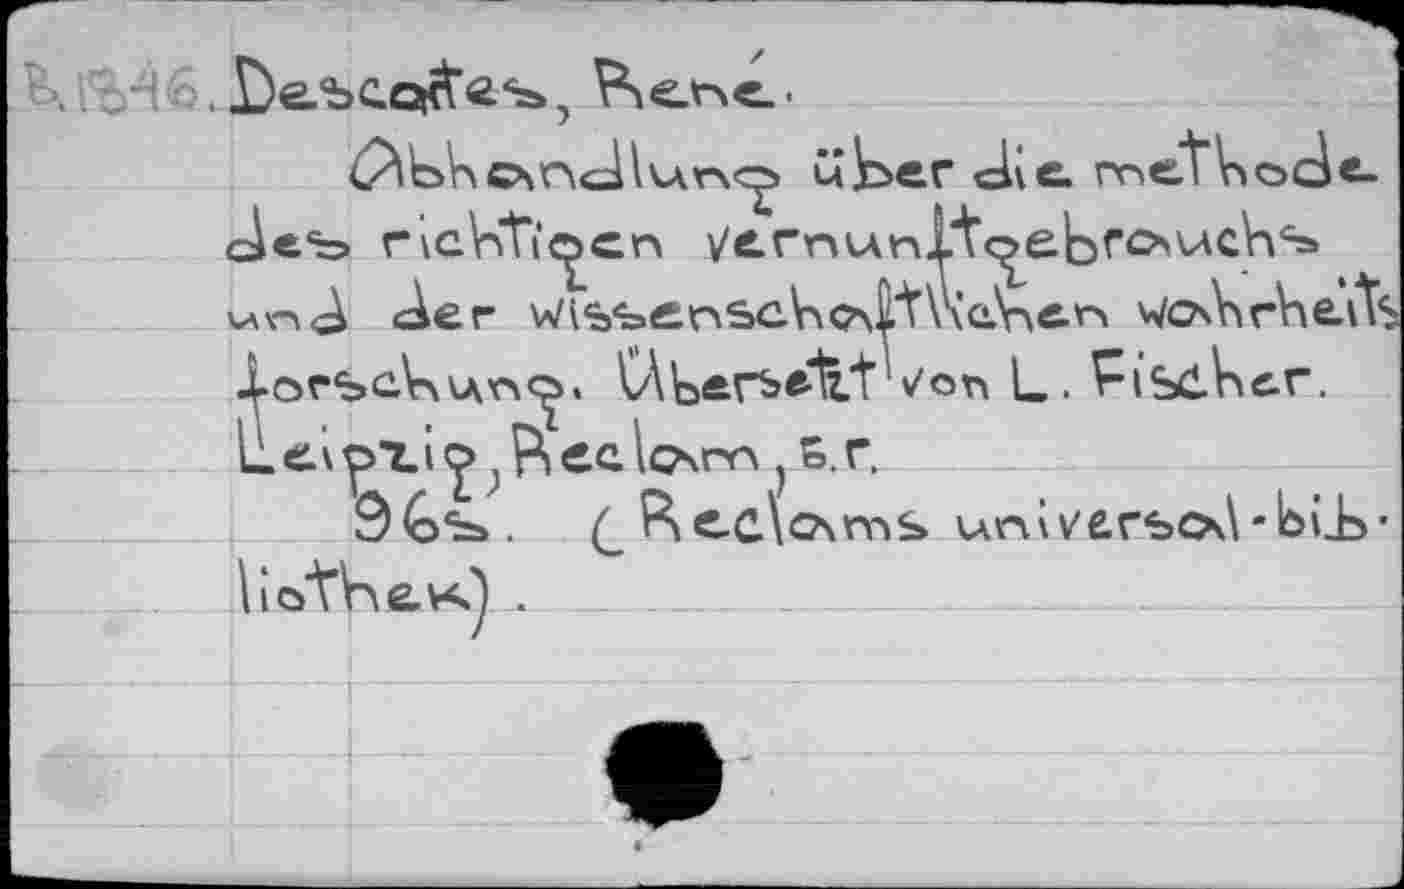 B.1846. Descartes, René.
Abhandlung über die methode
des richtigen vernunftgebrauchs
und der wissenschaftlichen wahrheits
forschung. Übersetzt von L. Fischer.
Leipzig, Reclam, б.г.
96s. (Reclams universal-bib-
liothek).